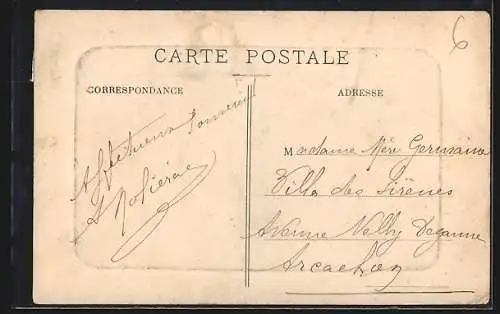 6
CARTE POSTALE
CORRESPONDANCE
ADRESSE
Affectueux Souvenir
Madame Méré Germaine
Villa des Sirènes
Avenue Nelly Deganne
Arcachon